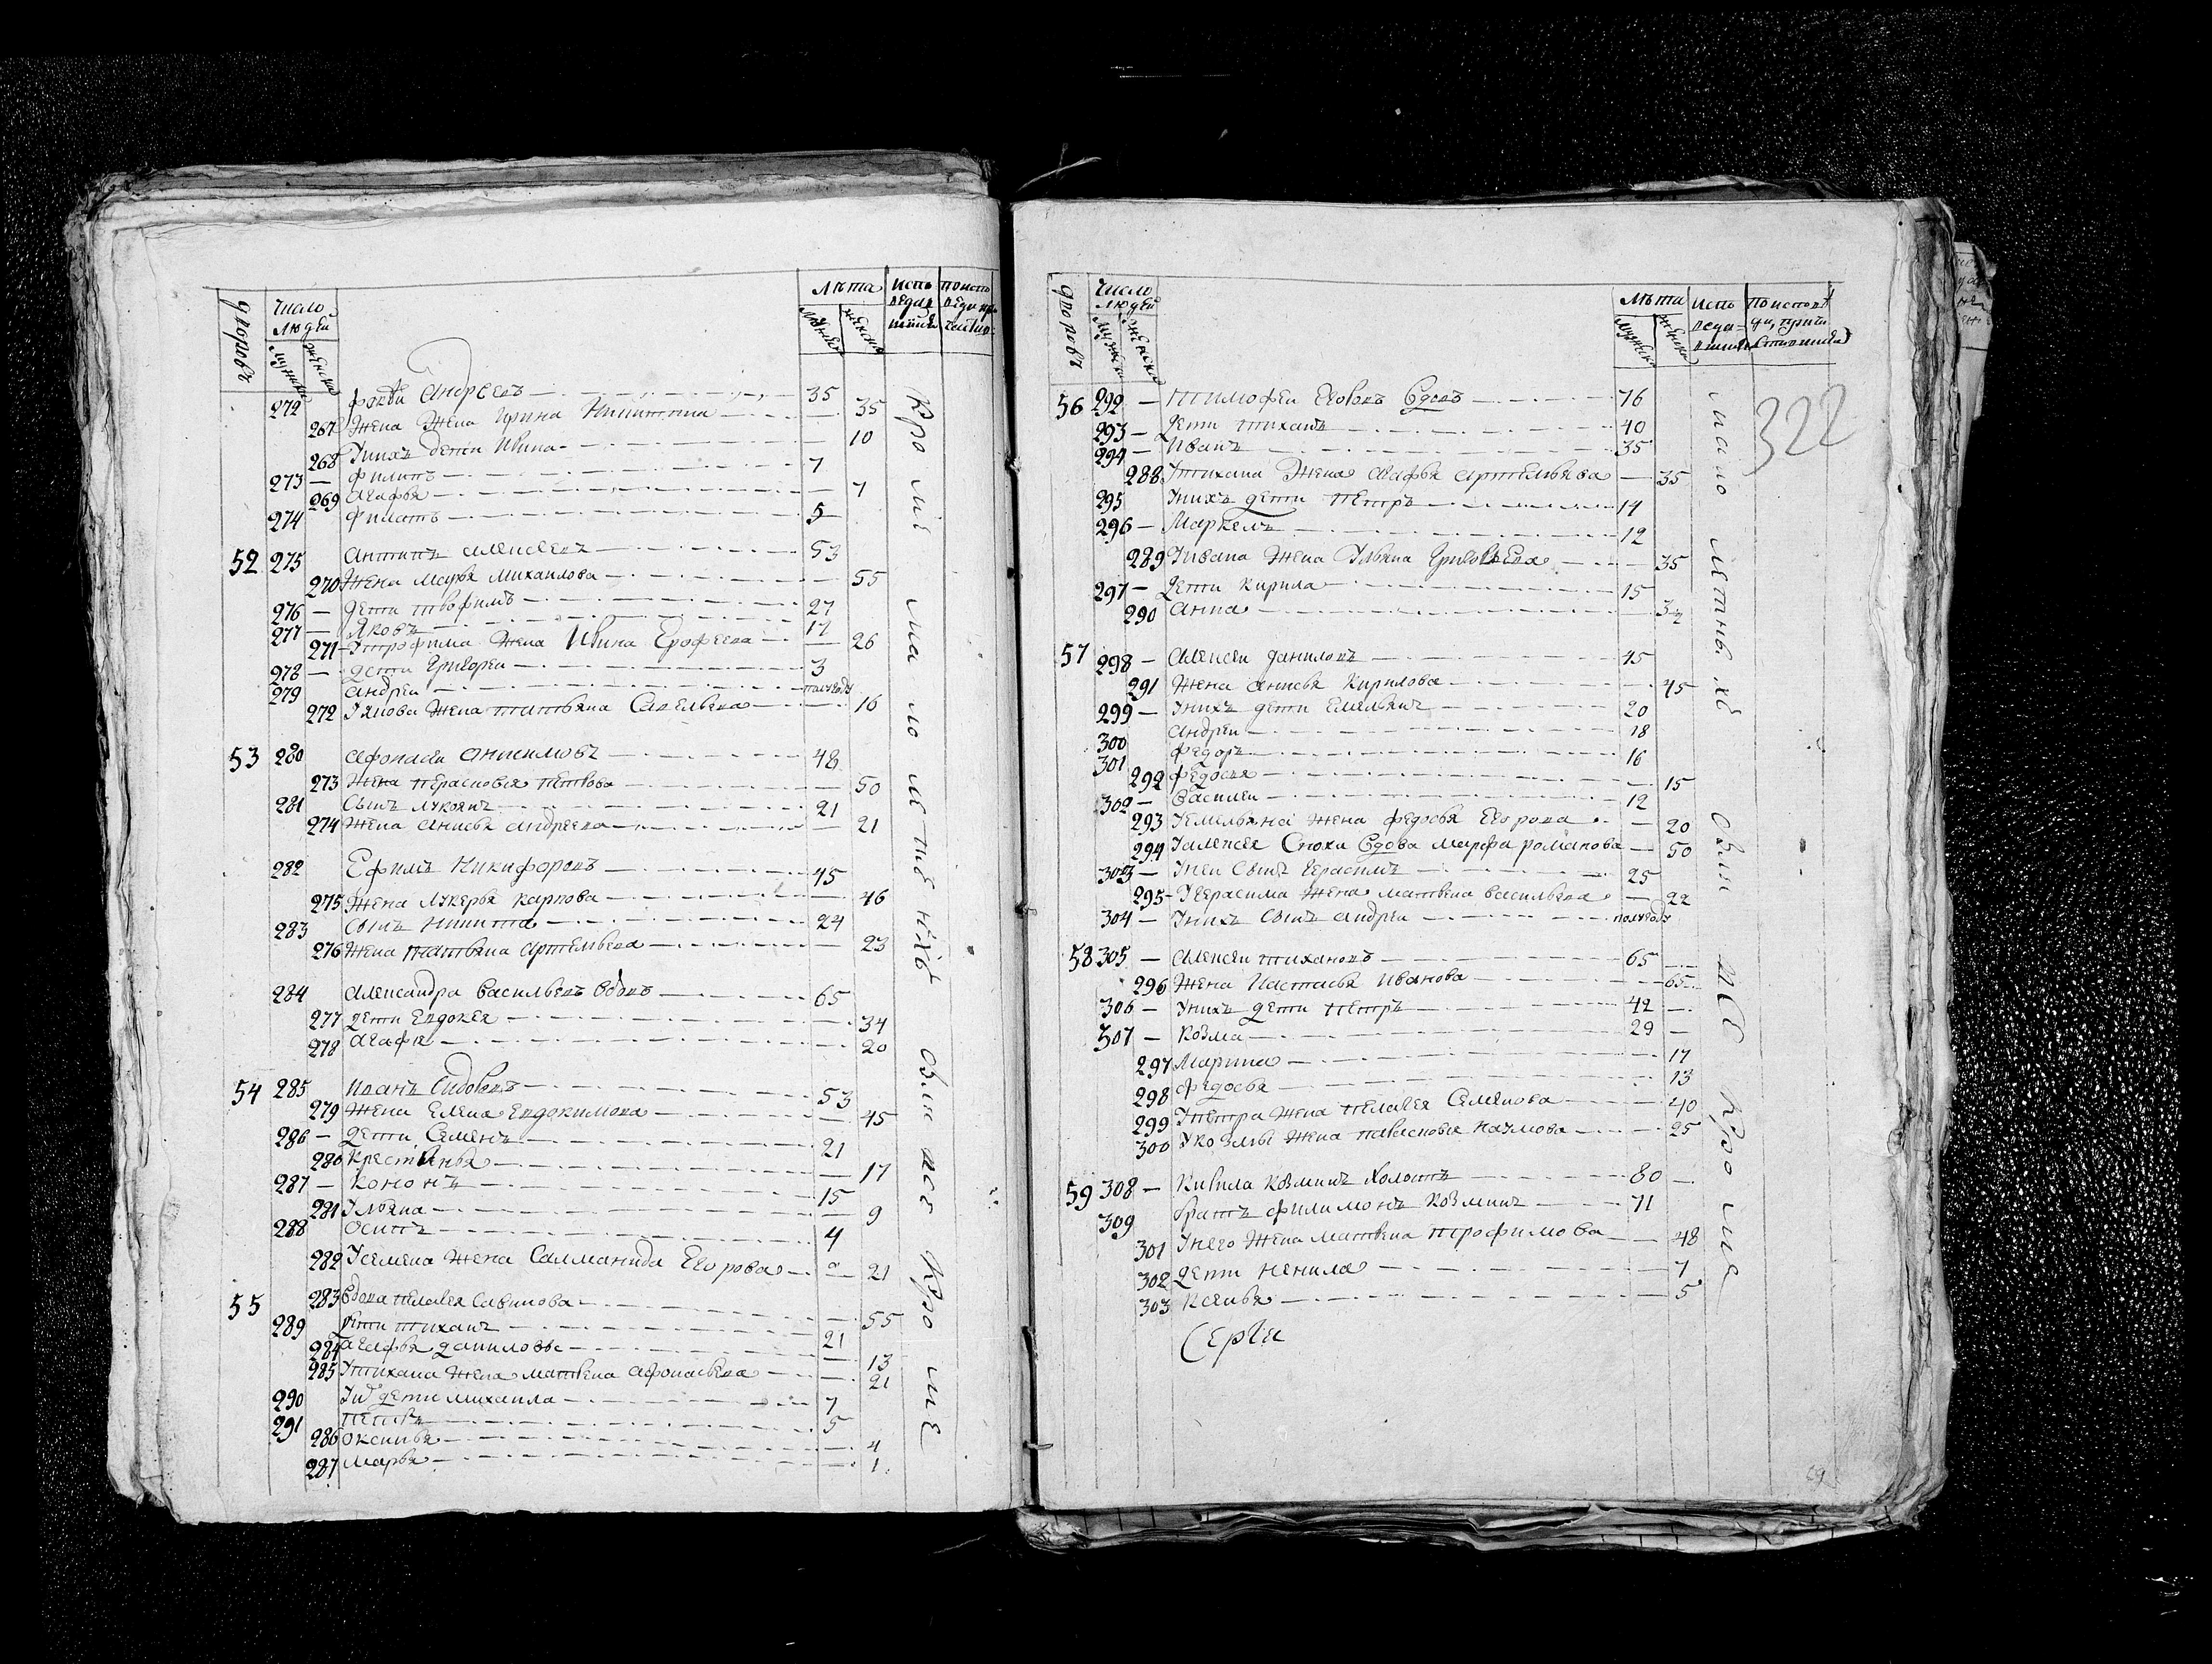 дворовъ
число людей
мужеска
женска
лѣта
мужеска
женска
272 Фокъ Андреевъ 35
267 Жена Жена Ирина Никитина 35
268 У нихъ дети Ирина 10
273 — Филипъ 7
269 Агафья 7
274 Филатъ 5
52 275 Антипъ Алексеевъ 53
270 Жена Марѳа Михаилова 55
276 — дети Трофимъ 27
277 — Яковъ 17
271 У Трофима Жена Ирина Ерофеева 26
278 — дети Григореи 3
279 Андреи полугоду
272 У Якова Жена Татьяна Савельева 16
53 280 Афонасеи Анисимовъ 48
273 Жена Перасковья Петрова 50
281 Сынъ Лукоянъ 21
274 Жена Анисья Андреева 21
282 Ефимъ Никифоровъ 45
275 Жена Лукерья Карпова 46
283 Сынъ Никита 24
276 Жена Татьяна Артемьева 23
284 Александра Васильевъ Вдовъ 65
277 дети Евдокея 34
278 Агафя 20
54 285 Иванъ Сидоровъ 53
279 Жена Елена Евдокимова 45
286 — дети Семенъ 21
280 Крестинья 17
287 — Кононъ 15
281 Ульяна 9
288 Осипъ 4
282 У Семена Жена Салманида Егорова 21
55 283 Вдова Пелагея Савинова 55
289 дети Тиханъ 21
284 Агафья Данилова 13
285 У Тихана Жена Матвена Афонасьева 21
290 У нихъ дети Михаила 7
291 Петръ 5
286 Оксинья 4
287 Марья 1
Кро мѣ ма ло лѣтнѣ нихъ Были все Кро ме
дворовъ
число людей
мужеска
женска
лѣта
мужеска
женска
322
56 292 — Тимофеи Егоровъ Вдовъ 76
293 — дети Тиханъ 40
294 — Иванъ 35
288 У Тихана Жена Агафья Артемьева 35
295 У нихъ дети Петръ 14
296 — Маркелъ 12
289 У Ивана Жена Ульяна Григорьева 35
297 — дети Кирила 15
290 Анна
57 298 — Алексеи Даниловъ 45
291 Жена Анисья Кирилова 45
299 — У нихъ дети Емельянъ 20
300 Андреи 18
301 Федоръ 16
292 Федосья 15
302 — Василеи 12
293 У Емельяна Жена Федосья Егорова 20
294 У Алексея Сноха Вдова Марфа Романова 50
303 — У неи Сынъ Герасимъ 25
295 — У Герасима Жена Матвена Васильева 22
304 — У нихъ Сынъ Андреи полугоду
58 305 — Алексеи Тихановъ 65
296 Жена Настасья Иванова 65
306 — У нихъ дети Петръ 42
307 — Козма 29
297 Марина 17
298 Федосья 13
299 У Петра Жена Пелагея Семенова 40
300 У Козьмы Жена Парасковья Наумова 25
59 308 — Кирила Козминъ Холостъ 80
309 братъ Филимонъ Козминъ 71
301 У него Жена Матвена Трофимова 48
302 дети Ненила 7
303 Ксенья 5
Сергеи
мало летны хъ Были все Кро ме
69